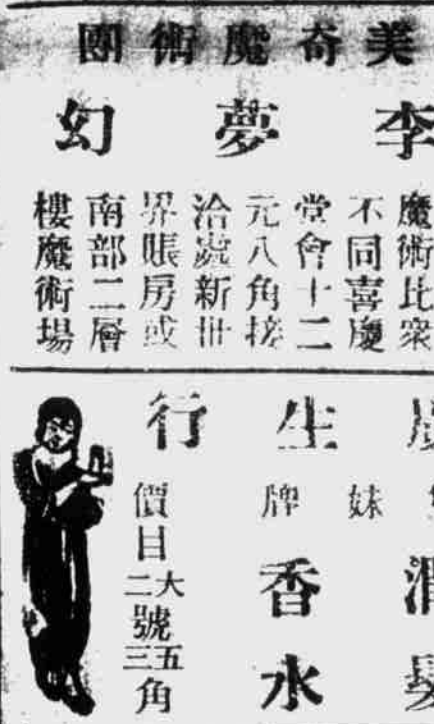 美奇魔術團
李夢幻
魔術比衆
不同喜慶
堂會十二
元八角接
洽處新世
界賬房或
南部二層
樓魔術場
生行
妹牌
香水
價目大二號五三角